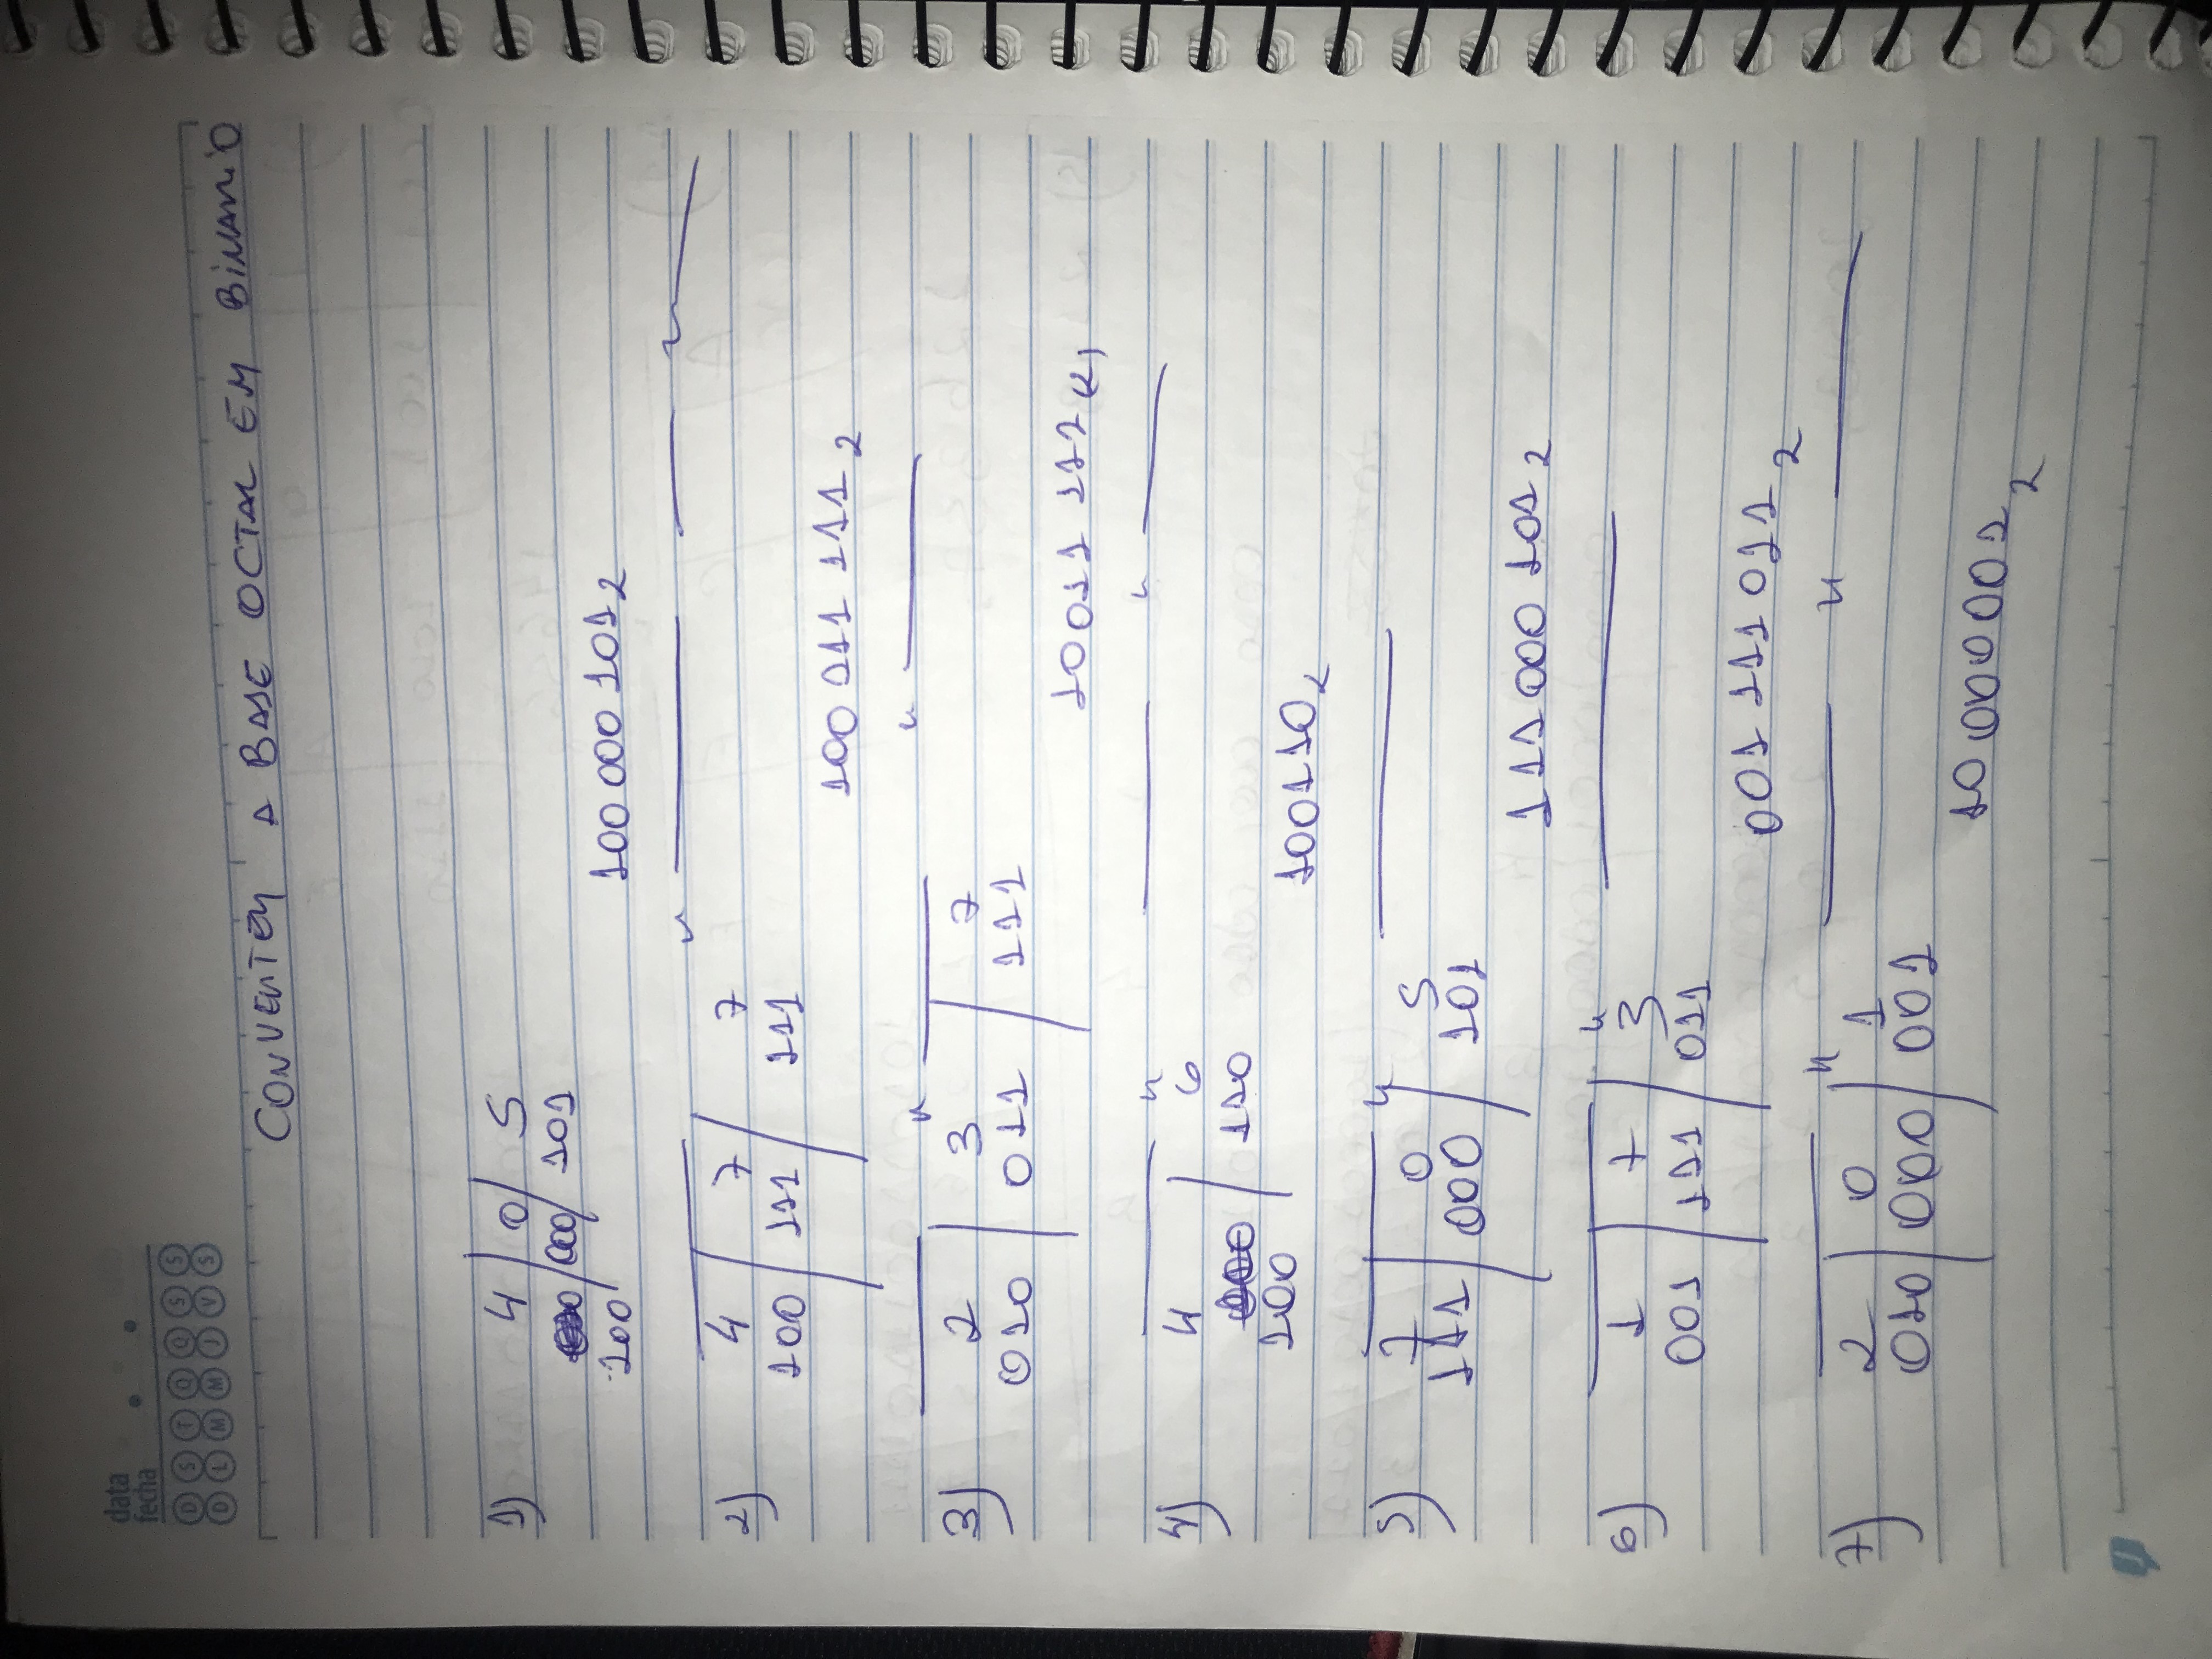 data
fecha
D S T Q Q S S
D L M M J V S
CONVERTER A BASE OCTAL EM BINARIO
1) 4 0 5
000 101
100
100 000 101 2
2) 4 7 7
100 111 111
100 111 111 2
3) 2 3 7
010 011 111
10011 111 (2)
4) 4 6
110
100
100110 2
5) 7 0 5
111 000 101
111 000 101 2
6) 1 7 3
001 111 011
001 111 011 2
7) 2 0 1
010 000 001
10 000001 2